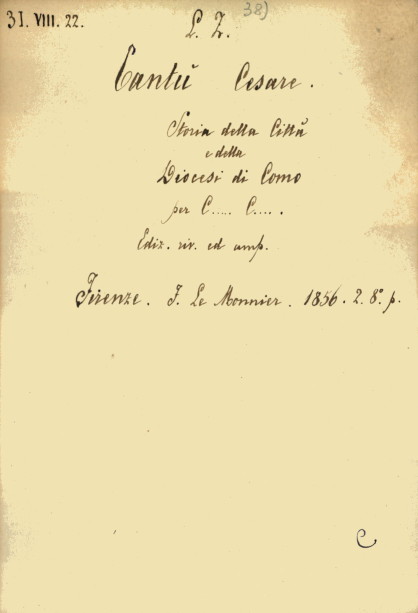 31. VIII. 22.
L. Z. 38)
Cantù Cesare.
Storia della Città
e della
Diocesi di Como
per C..... C.....
Ediz. riv. ed amp.
Firenze. F. Le Monnier. 1856. 2. 8° p.
C